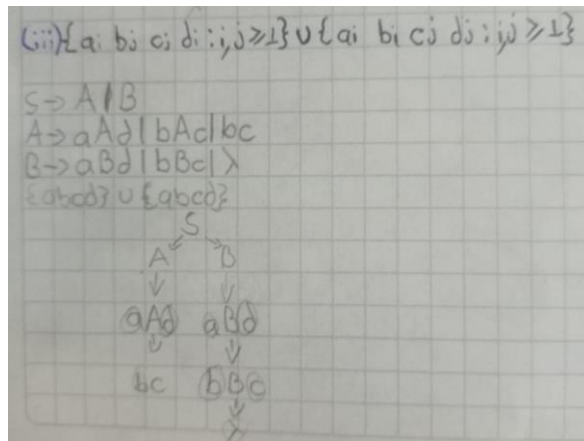 (iii) {ai bj cj di : i,j ≥ 1} ∪ {ai bi cj dj : i,j ≥ 1}
S → A | B
A → aAd | bAc | bc
B → aBd | bBc | λ
{abcd} ∪ {abcd}
S
A B
aAd aBd
bc bBc
λ